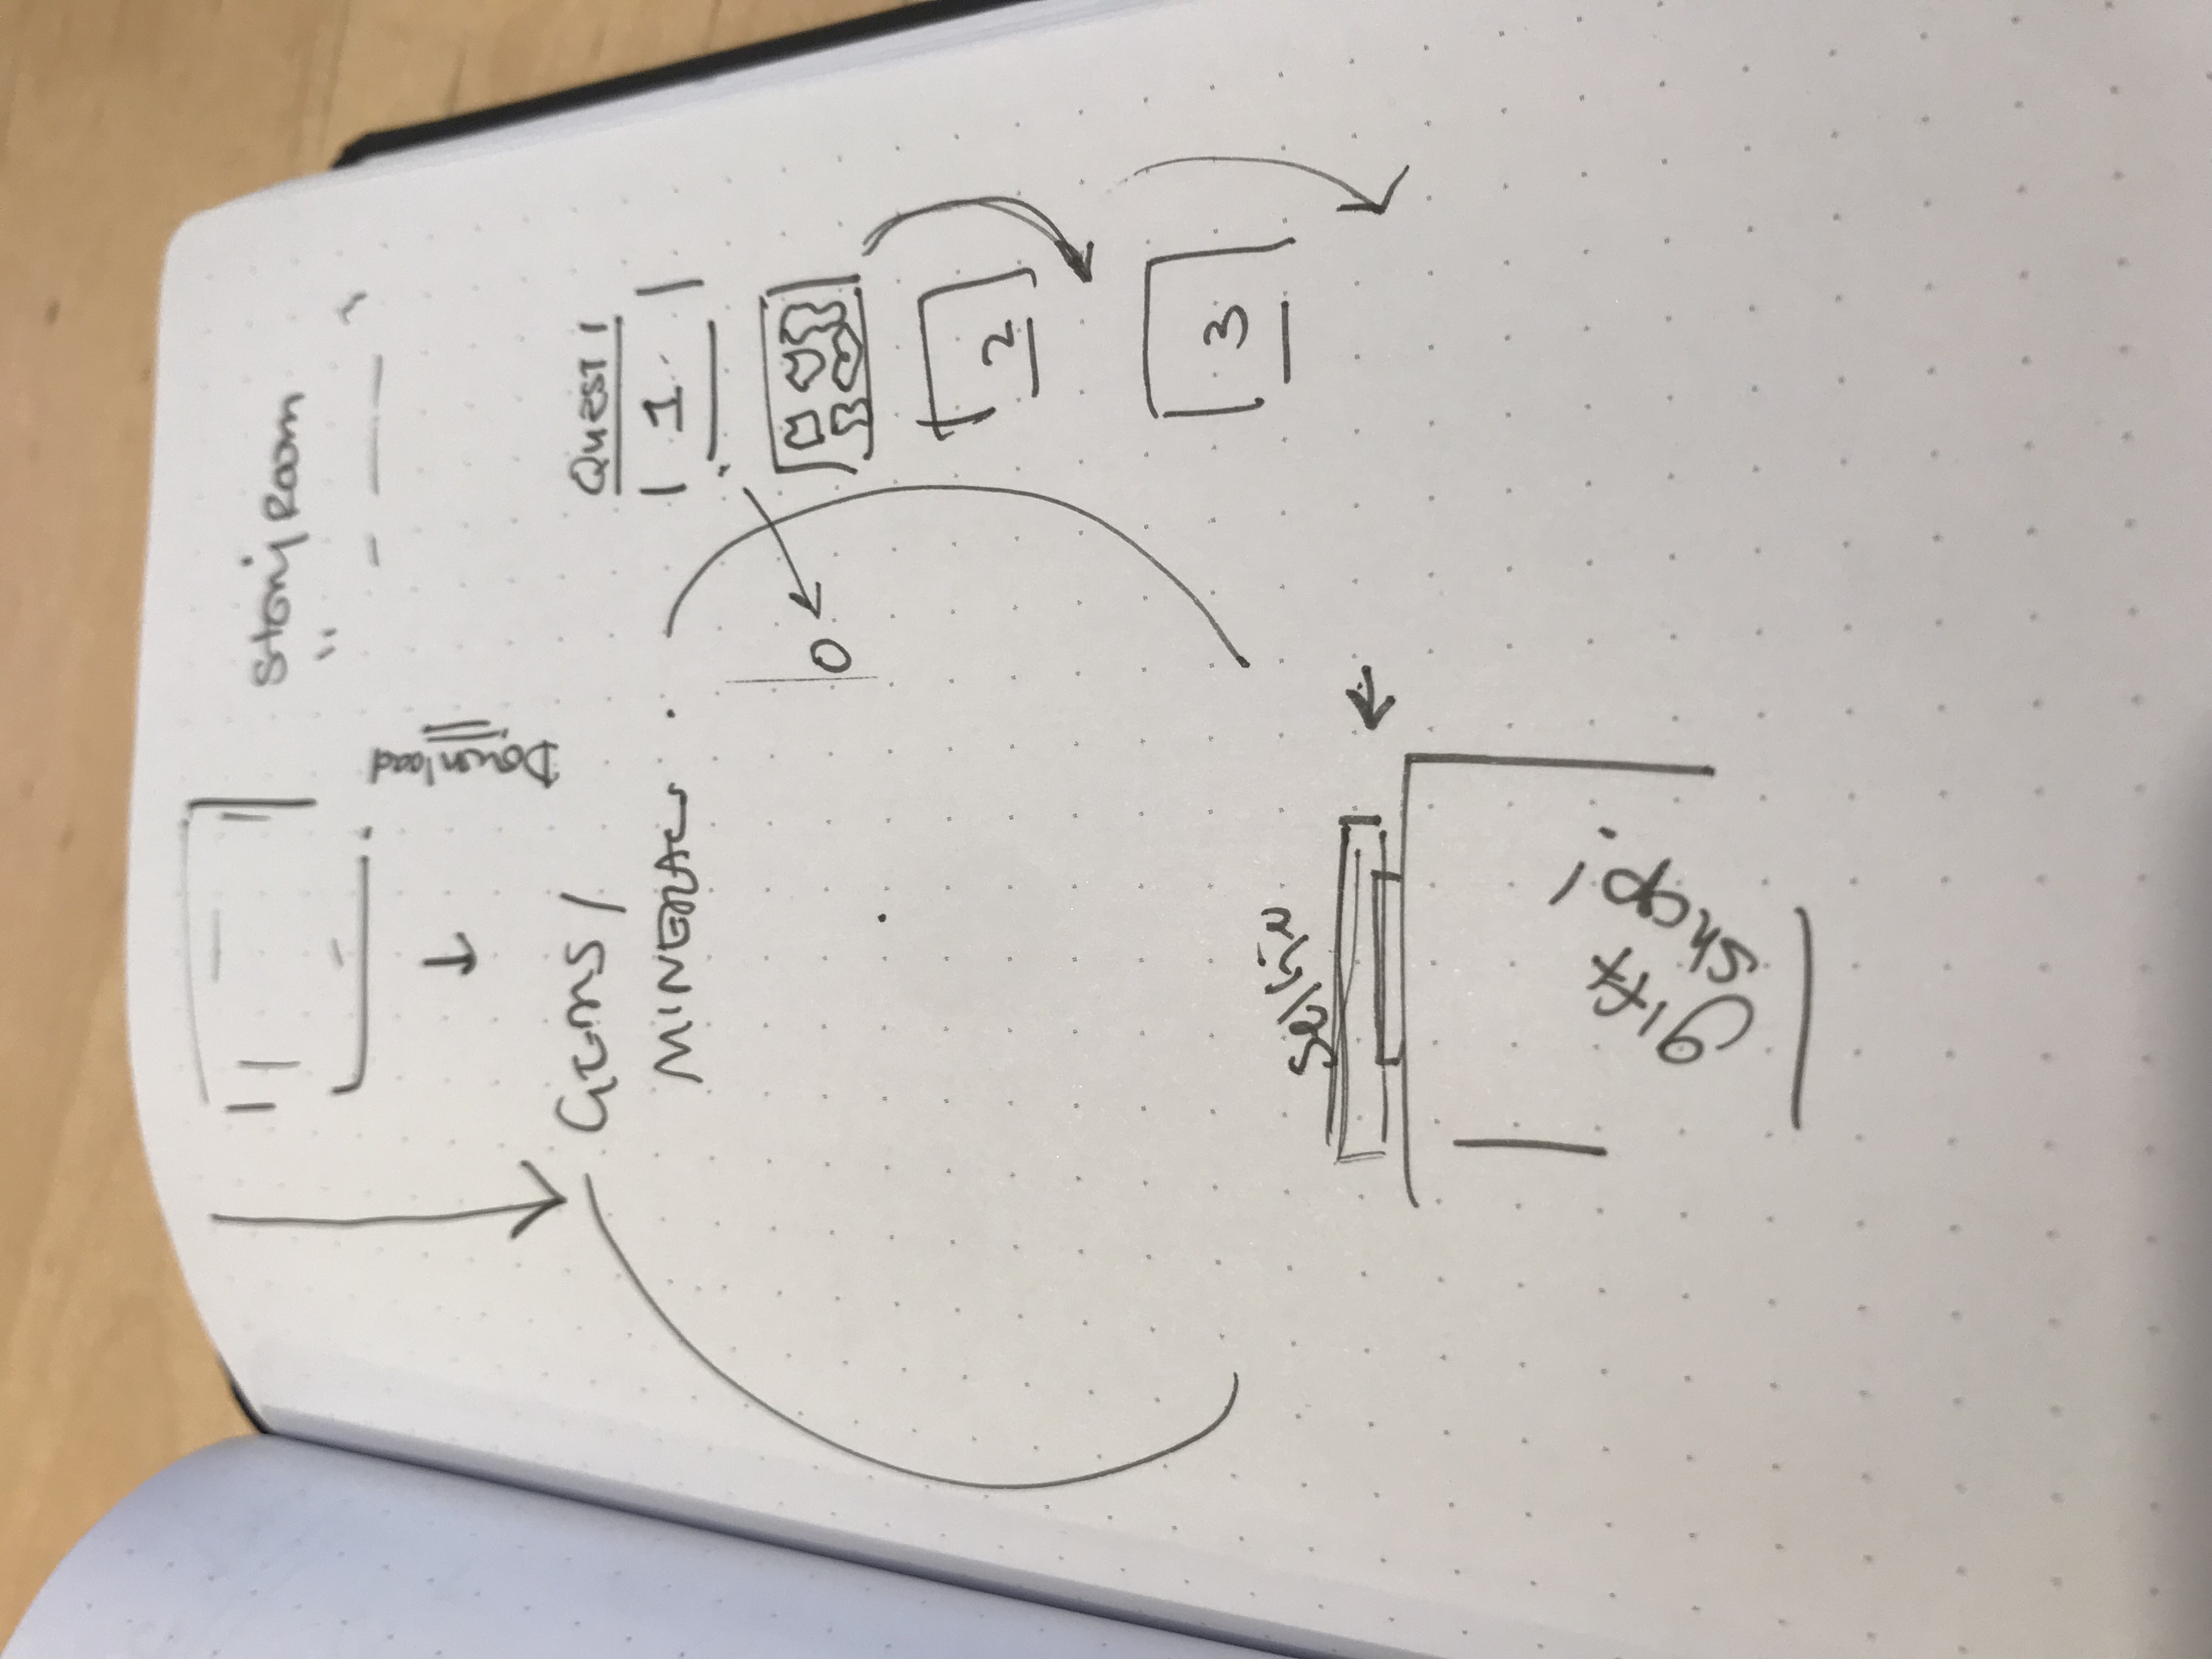 Story Room
Download
Gems/
MINERALS
QUEST 1
1
2
3
Selfie
gift
shop!